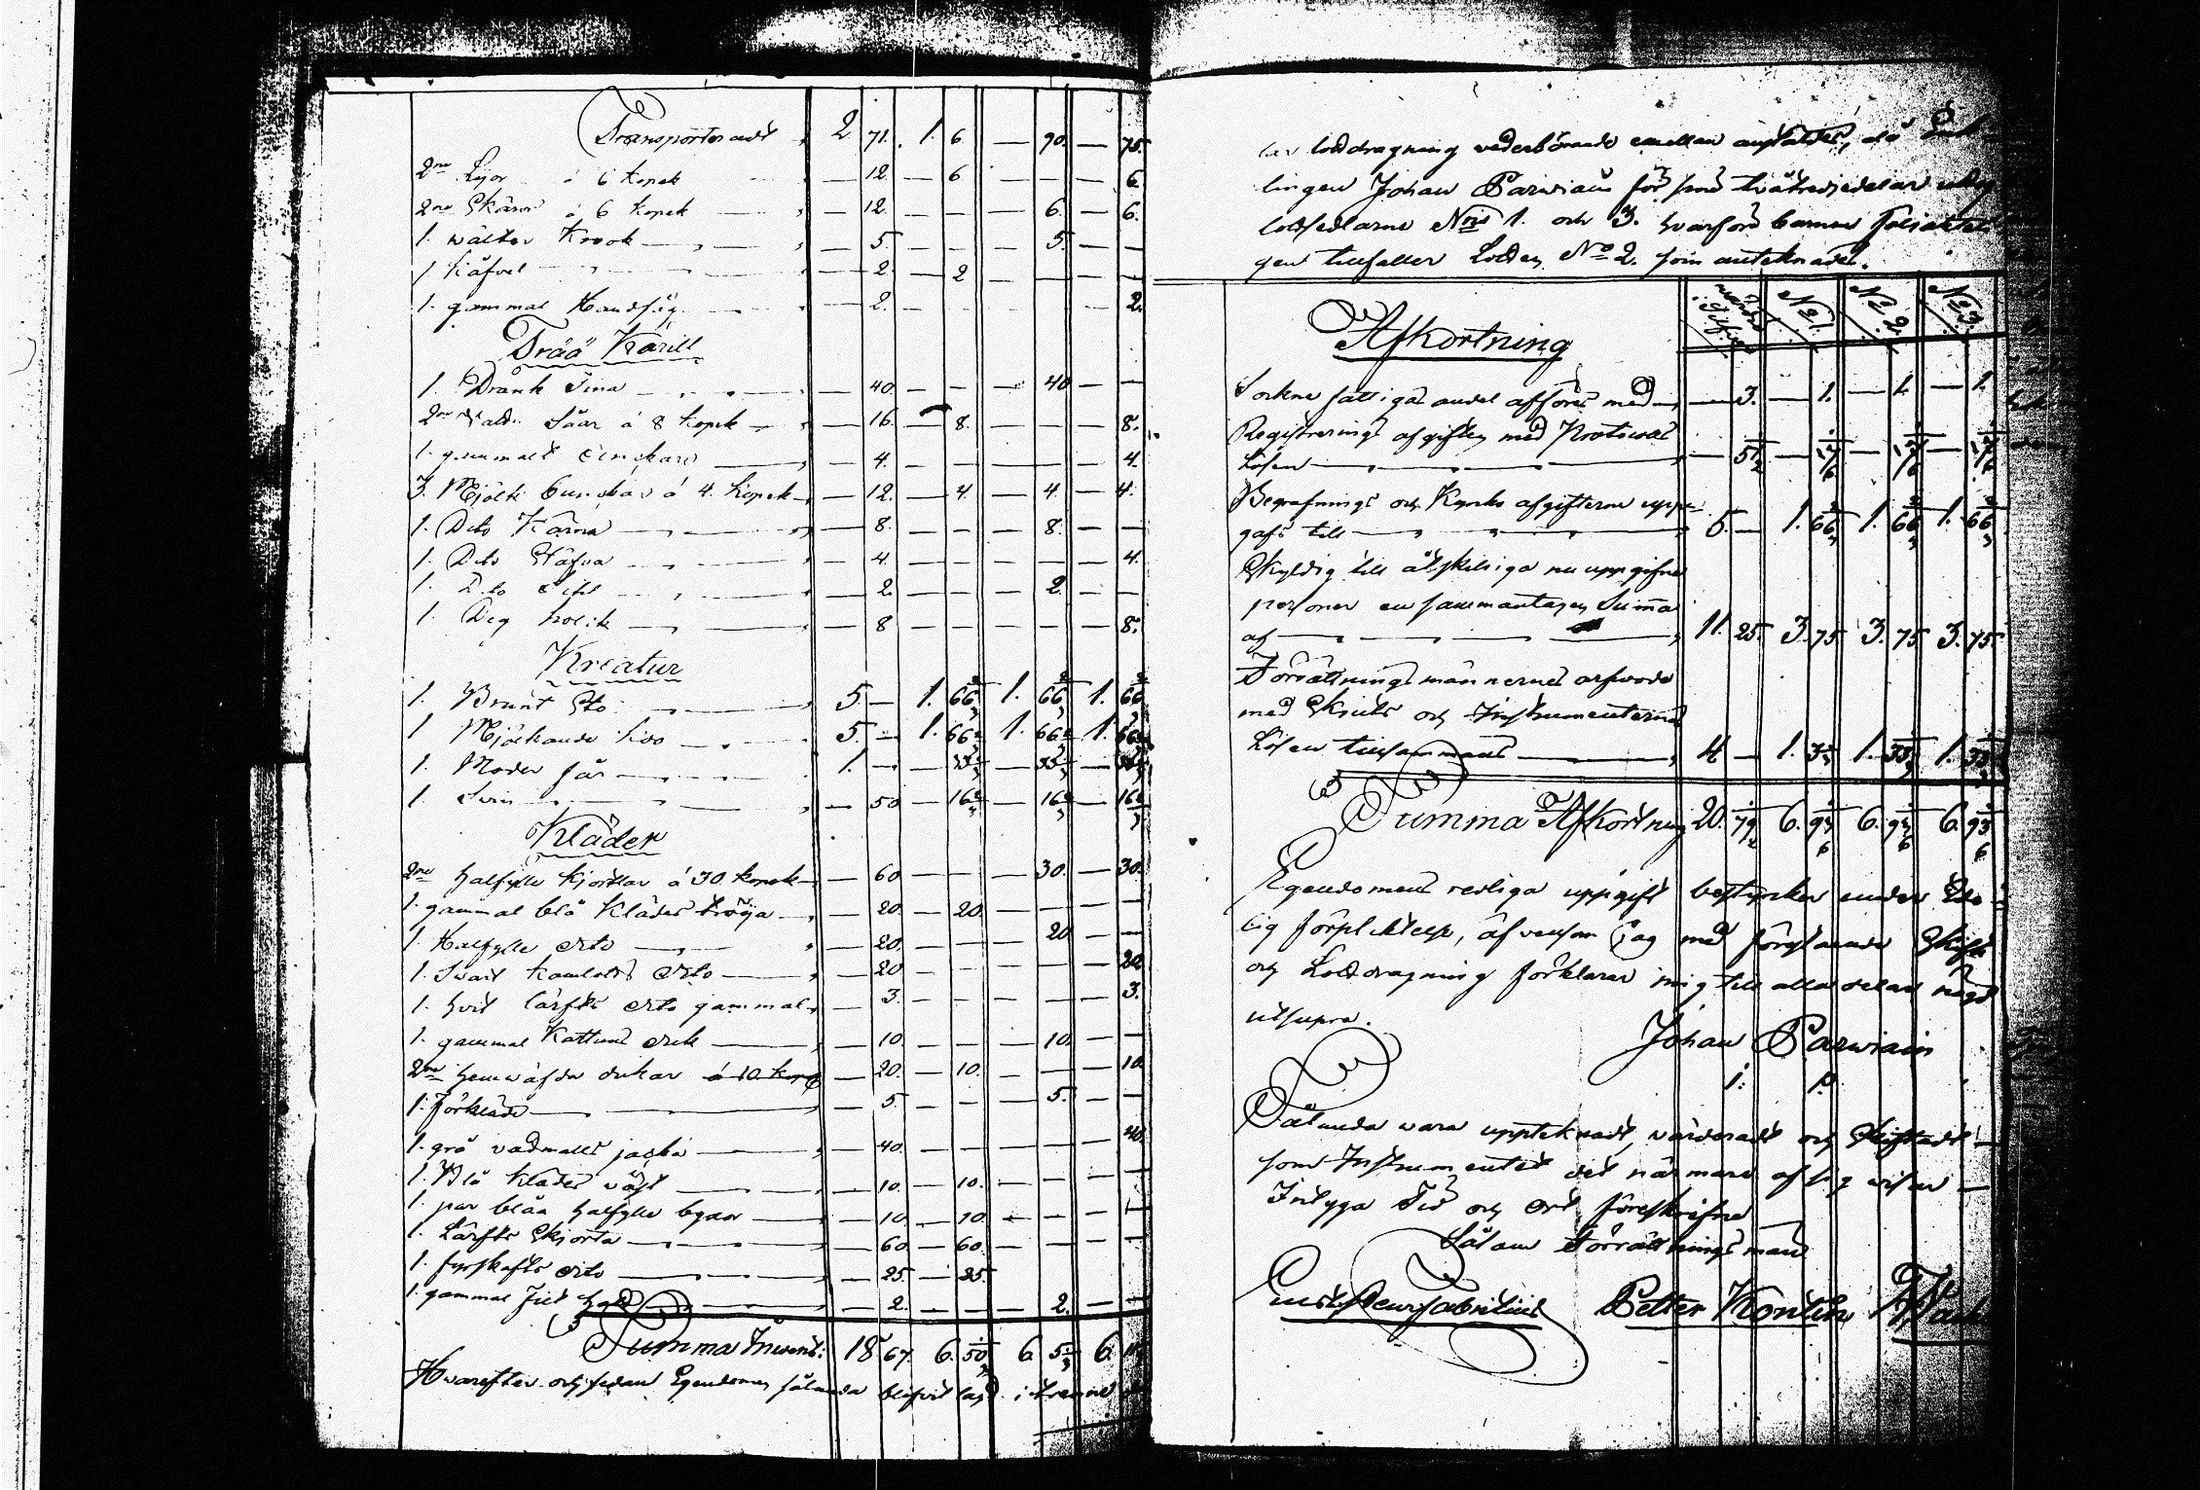 Transporteradt 2 71. 1. 6 — 90. — 75.
2ne Lijor á 6 kopek — 12. — 6 — — — 6.
2ne Skäror á 6 kopek — 12. — — — 6. — 6.
1. wälter Krook — 5. — — — 5. — —
1 Käfvel — 2. — 2 — — — —
1. gammal Handsåg — 2. — — — — — 2.
Trää Käril
1. Drank Tina — 40. — — — 40 — —
2ne Såar á 8 kopek — 16. — 8. — — — 8.
1. gammalt — 4. — — — — — 4.
3. Mjölk bunckar á 4. kopek — 12. — 4. — 4. — 4.
1. Dito Kärna — 8. — — — 8. — —
1. Dito Stäfva — 4. — — — — — 4.
1. Dito — 2. — — — 2. — —
1. Deg — 8 — — — — — 8.
Kreatur
1. Brunt Sto 5. — 1. 66 2/3 1. 66 2/3 1. 66 2/3
1 Mjölkande Koo 5. — 1. 66 2/3 1. 66 2/3 1. 66 2/3
1. Moder får 1. — — 33 1/3 — 33 1/3 — 33 1/3
1. Svin — 50 — 16 2/3 — 16 2/3 — 16 2/3
Kläder
2ne halfylle kjortlar á 30 kopek — 60 — — — 30. — 30.
1. gammal blå Klädes tröija — 20. — 20. — — — —
1. Halfylle dito — 20. — — — 20 — —
1. Svart kamlotts dito — 20. — — — — — 20.
1. hvit lärfts dito gammal — 3. — — — — — 3.
1. gammal Kattuns duk — 10. — — — 10. — —
2ne hemwäfda dukar á 10 kop — 20. — 10. — — — 10.
1. Förkläde — 5. — — — 5. — —
1. grå vadmalls jacka — 40. — — — — — 40.
1. Blå Klädes väst — 10. — 10. — — — —
1. par blåa halfylle byxor — 10. — 10 — — — —
1. Lärfts Skjorta — 60. — 60. — — — —
1. fyrskafts dito — 25. — 25.
1. gammal Filt hatt — 2. — — — 2. — —
Summa Invent: 18 67. 6. 50 6. 5 6.
Hwarefter och sedan Egendomen sålunda blifvit lagd i trenne
loddragning vederbörande emellan anstaltes, då
lingen Johan Parwiain för sine tvåtredjedelar
lodsedlarne Nris 1. och 3. hvarföre barnens
gen tillfaller Lodden No 2. som antecknades.
Afkortning No 1. No 2. No 3.
Sockne fattigas andel afföres med — 3. — 1. — 1. — 1.
Registrerings afgiften med Protocols
Lösen — 5 1/2 — 1 5/6 — 1 5/6 — 1 5/6
Begrafnings och Kyrko afgifterne upp=
gafs till 5. — 1. 66 2/3 1. 66 2/3 1. 66 2/3
Skyldig till åtskilliga nu uppgifne
personer en sammantagen Summa
af 11. 25. 3. 75 3. 75 3. 75.
Förrättnings männernes arfwode
med Skjuts och Instrumenternes
Lösen tillsammans 4 — 1. 33 1/3 1. 33 1/3 1. 33 1/3
Summa Afkortning 20. 6. 6. 6.
Egendomens redliga uppgift bestyrkes under Ede=
lig förplicktelse, äfvensom jag med förestående Skifte
och Loddragning förklarar mig till alla delar nögd
utsupra.
Johan Parwiain
Sålunda wara upptecknadt, värderadt och skiftadt
som Instrumentet det närmare af sig wisar
Intyga Tid och Ort föreskrifne
Såsom Förrättningsmän
Petter Kontin